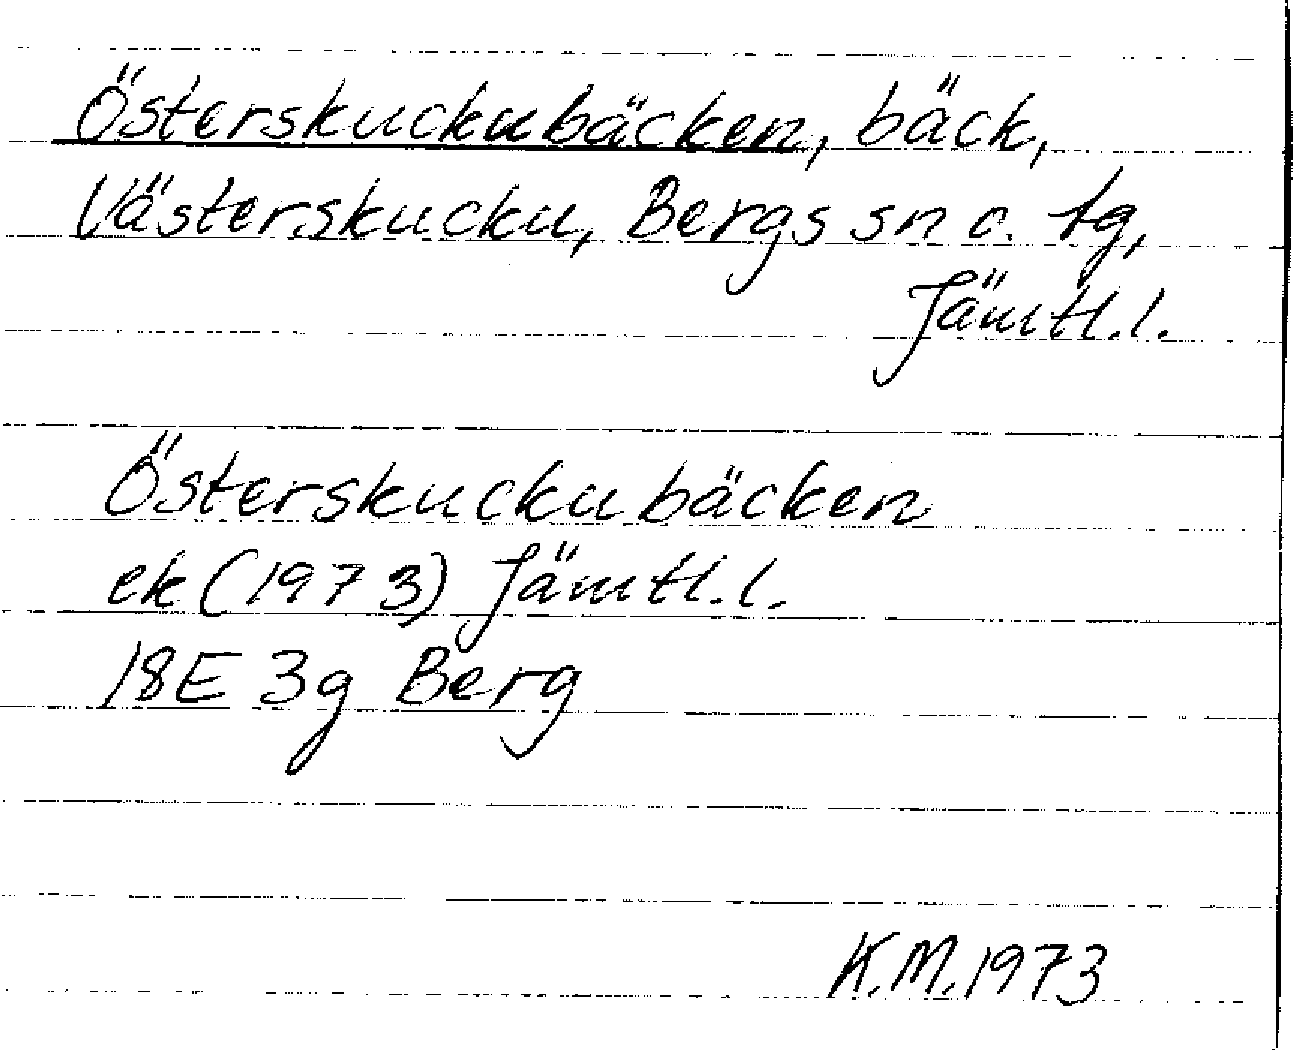 Österskuckubäcken, bäck,
Västerskucku, Bergs sn o. tg,
Jämtl.l.
Österskuckubäcken
ek (1973) Jämtl.l.
18E 3g Berg
K.M. 1973